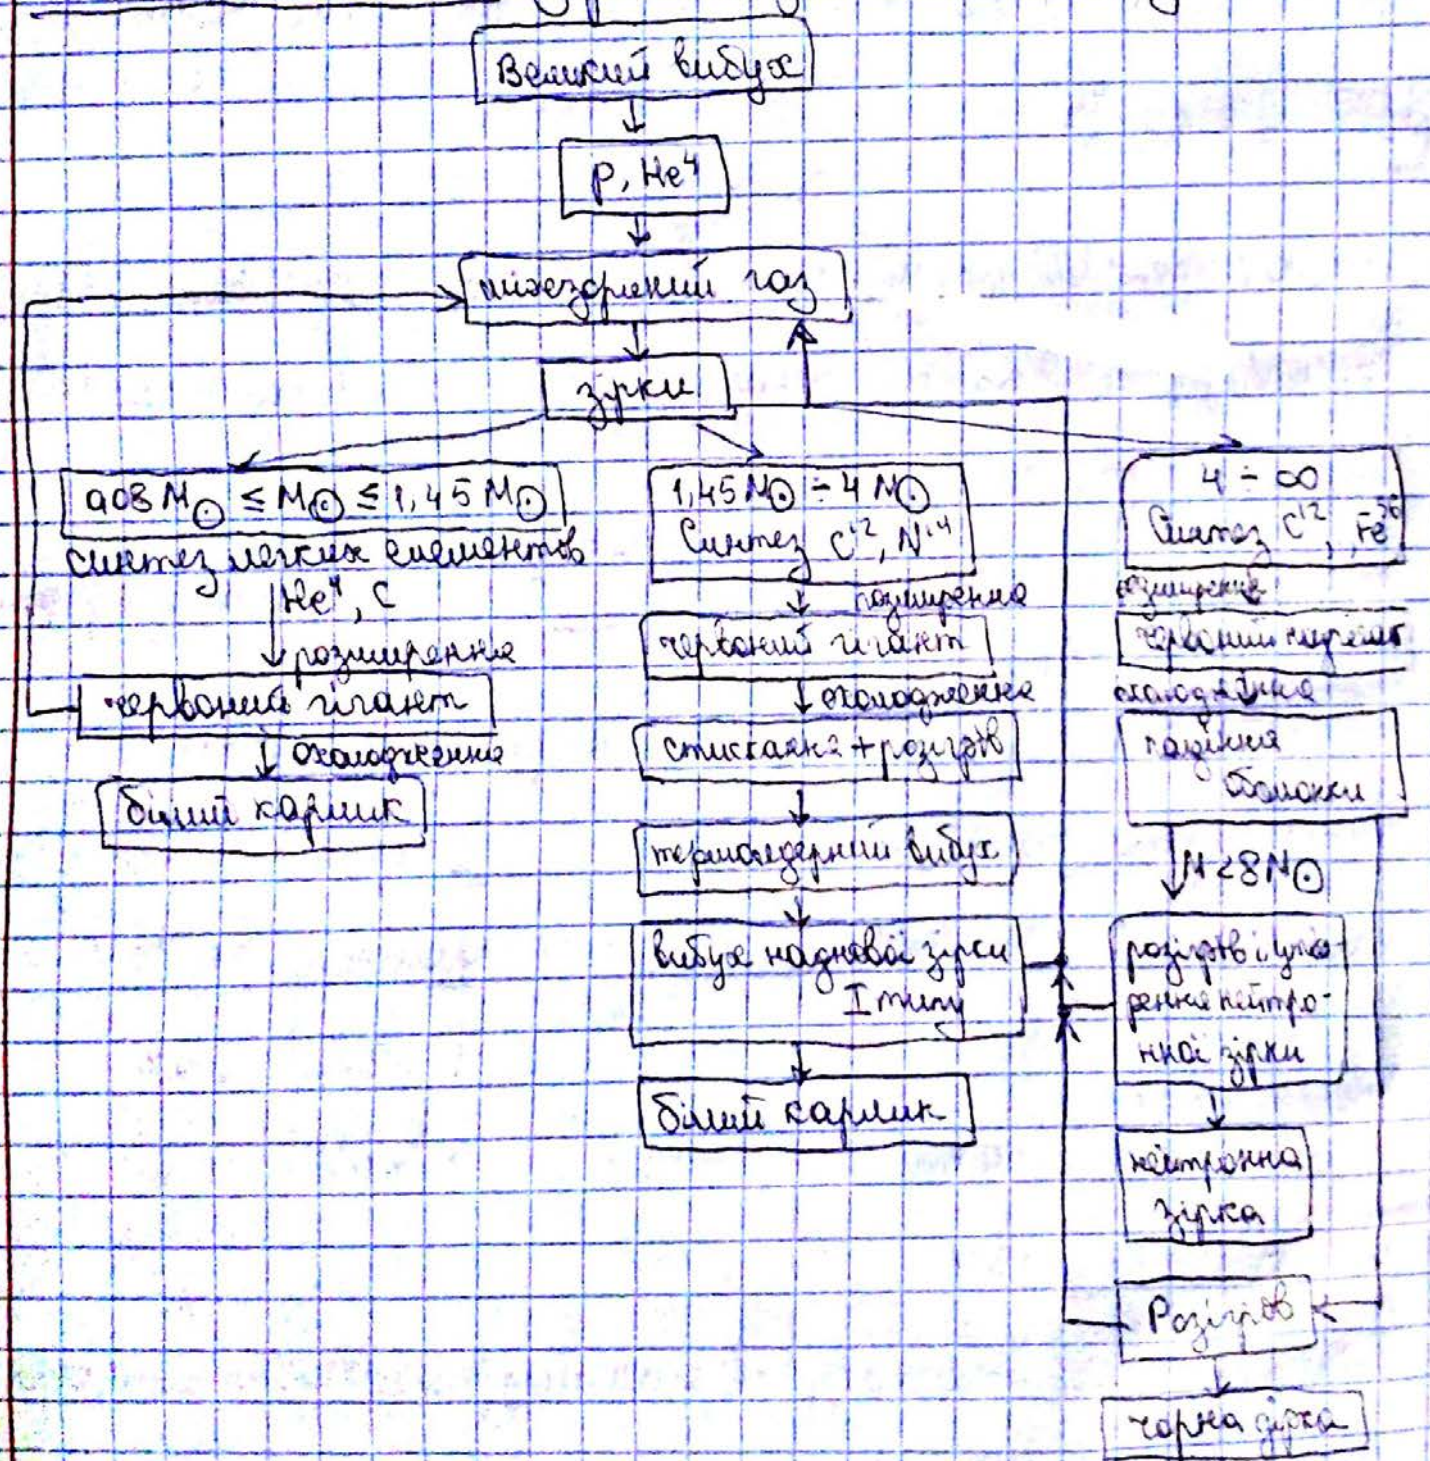 Великий вибух
p, He⁴
міжзоряний газ
зірки
0,08 M☉ ≤ M☉ ≤ 1,45 M☉
синтез легких елементів
He⁴, C
розширення
червоний гігант
охолодження
білий карлик
1,45 M☉ ÷ 4 M☉
Синтез C¹², N¹⁴
розширення
червоний гігант
охолодження
стискання + розігрів
термоядерний вибух
вибух наднової зірки
I типу
білий карлик
4 ÷ ∞
Синтез C¹², Fe⁵⁶
розширення
червоний
охолодження
падіння
оболонки
M < 8M☉
розігрів і утво-
рення нейтро-
нної зірки
нейтронна
зірка
Розігрів
чорна дірка